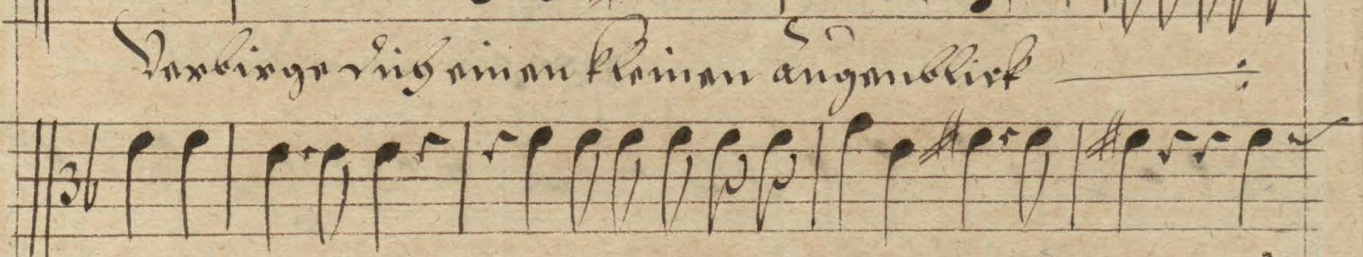 Verbirge dich einen kleinen augenblick